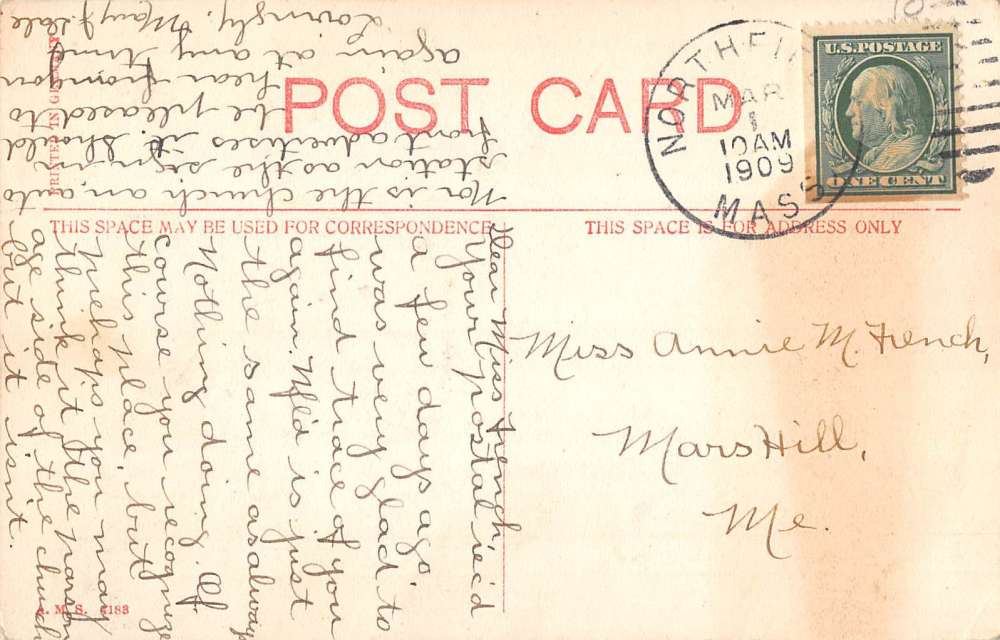 POST CARD
PRINTED IN GERMANY
THIS SPACE MAY BE USED FOR CORRESPONDENCE
THIS SPACE IS FOR ADDRESS ONLY
NORTHFIELD
MAR
1
10AM
1909
MASS
U.S.POSTAGE
ONE CENT
Miss Annie M. French,
Mars Hill,
Me.
Dear Miss French,
Your postal rec'd
a few days ago
was very glad to
find trace of you
again. Nf'ld is just
the same as always
Nothing doing. Of
course you recognize
this place, but
prehaps you may
think it the parson
age side of the church
but it isn't.
Nor is the church an auto
station as the sign in
front advertises it. Should
be pleased to
hear from you
again at any time
Lovingly, May
A. M. S. 4183